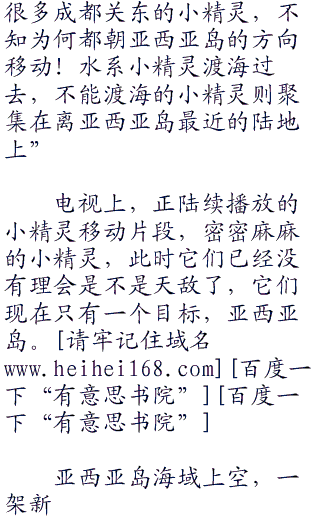 很多成都关东的小精灵，不
知为何都朝亚西亚岛的方向
移动！水系小精灵渡海过
去，不能渡海的小精灵则聚
集在离亚西亚岛最近的陆地
上”
电视上，正陆续播放的
小精灵移动片段，密密麻麻
的小精灵，此时它们已经没
有理会是不是天敌了，它们
现在只有一个目标，亚西亚
岛。[请牢记住域名
www.heihei168.com][百度一
下“有意思书院”][百度一
下“有意思书院”]
亚西亚岛海域上空，一
架新